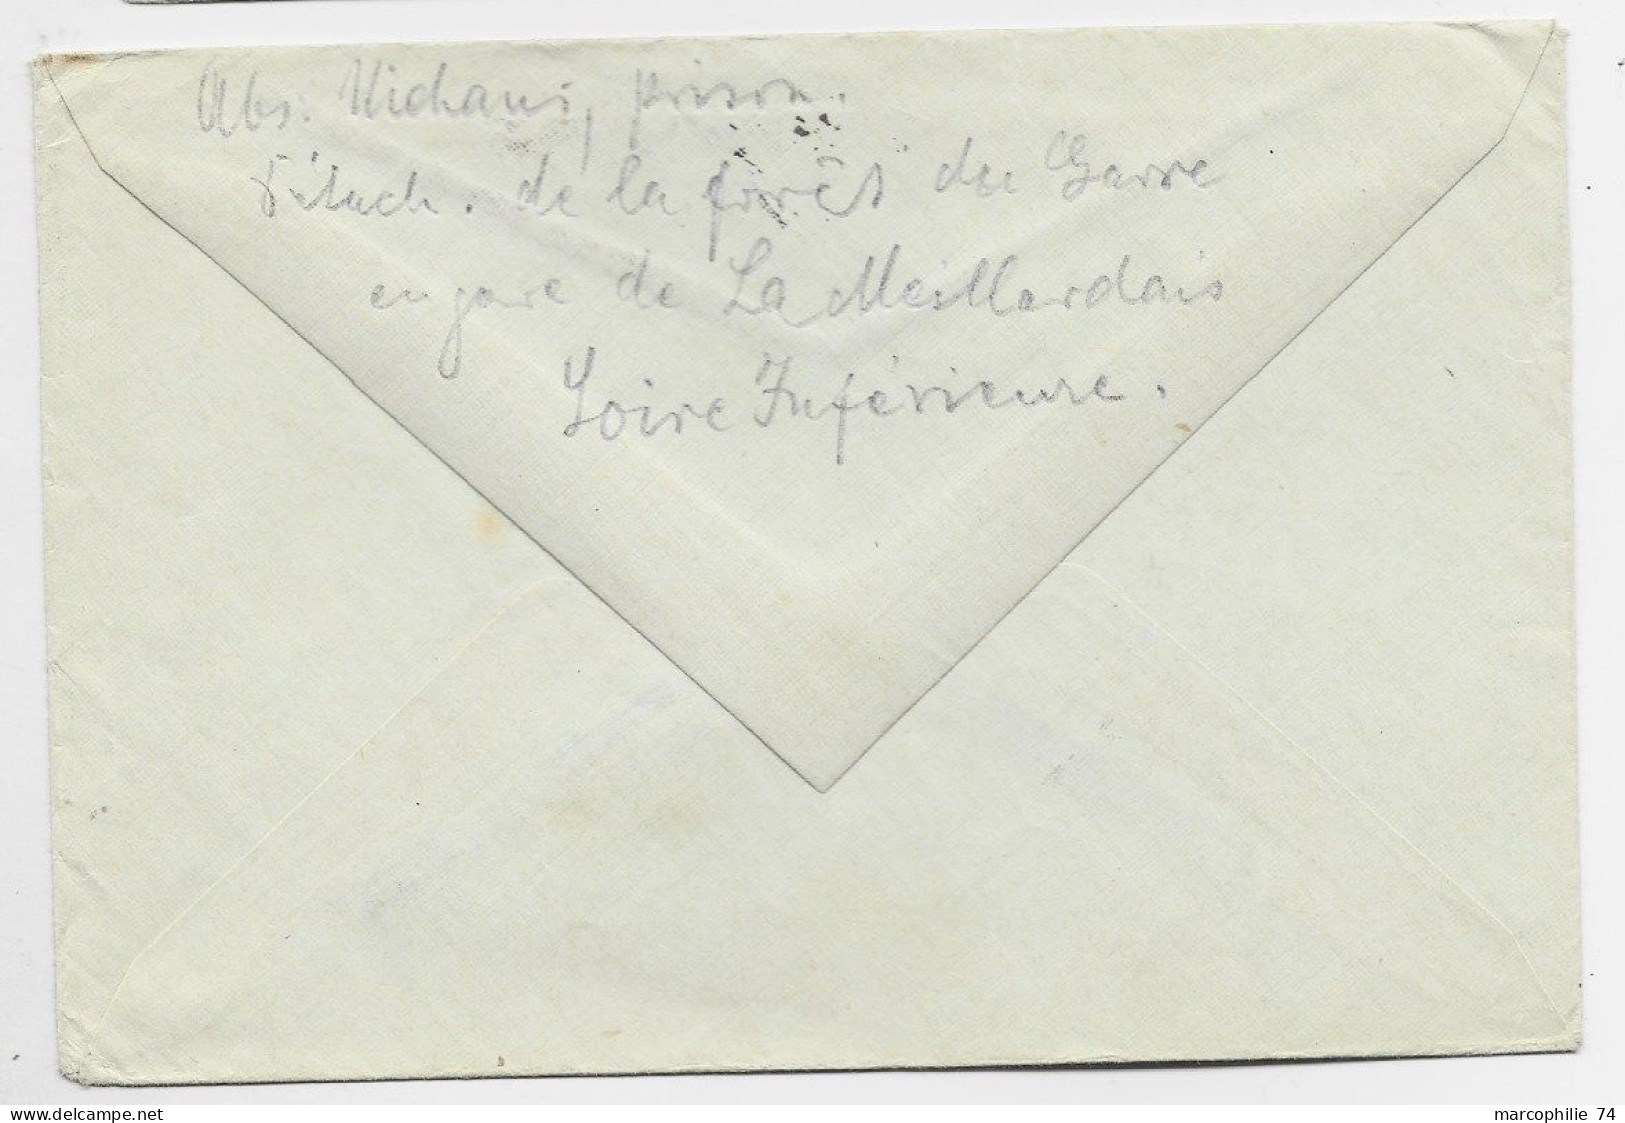 Abs: Michaud, prison.
Détach. de la forêt du Gavre
en gare de La Meillerdais
Loire Inférieure.
www.delcampe.net
marcophilie 74